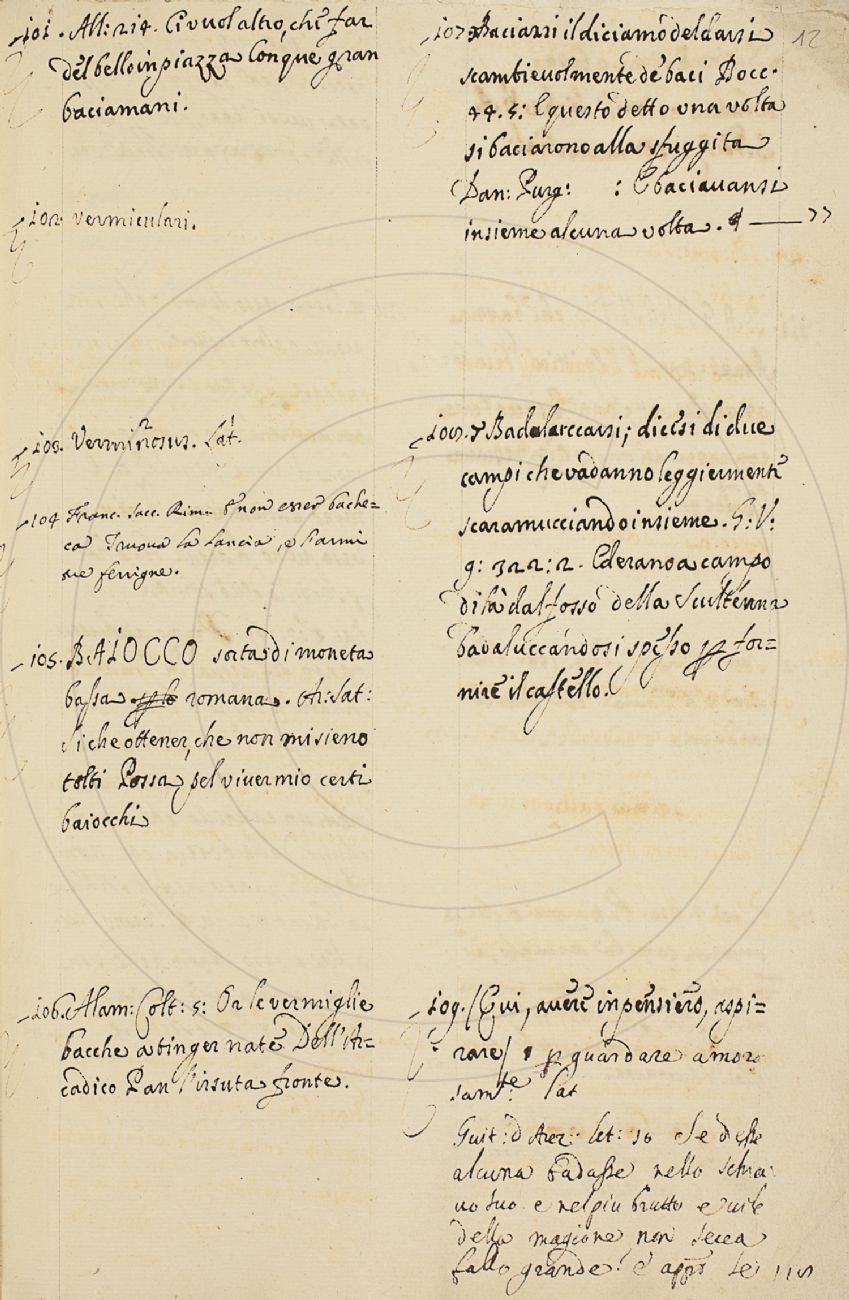 101. All: 214. Ci vuol altro, che far
del bello in piazza Con que gran
baciamani.
102. vermiculari.
103. Verminosus. Lat.
104 Franc. Sacc. Rim. E non esser bache=
ca Truova la Lancia, e l'armi
tue ferrigne.
105. BAIOCCO sorta di moneta
bassa romana. Ar: Sat:
Si che ottener, che non mi sieno
tolti Possa pel viver mio certi
baiocchi
106. Alam: Colt: 5: Or le vermiglie
bacche a tinger nate Dell'Ar=
cadico Pan l'irsuta fronte.
12
107. Baciarsi il diciamo del darsi
scambievolmente de baci Bocc.
44. 5: E questo detto una volta
si baciarono alla sfuggita
Dan: Purg: : E baciavansi
insieme alcuna volta.
Badaluccarsi; dicesi di due
campi che vadanno leggiermente
scaramucciando insieme. G: V:
9: 322: 2. Ed erano a campo
di là dal fosso della Scultenna
badaluccandosi spesso p for=
nire il castello.
109. (Qui, avere in pensiero, aspi=
rare) p guardare amoro
samte. Lat
Guit: d Arez: let: 10 Se d esse
alcuna badasse nello schia
vo suo e nel piu brutto e vile
della magione non secca
fallo grande? e appr Se